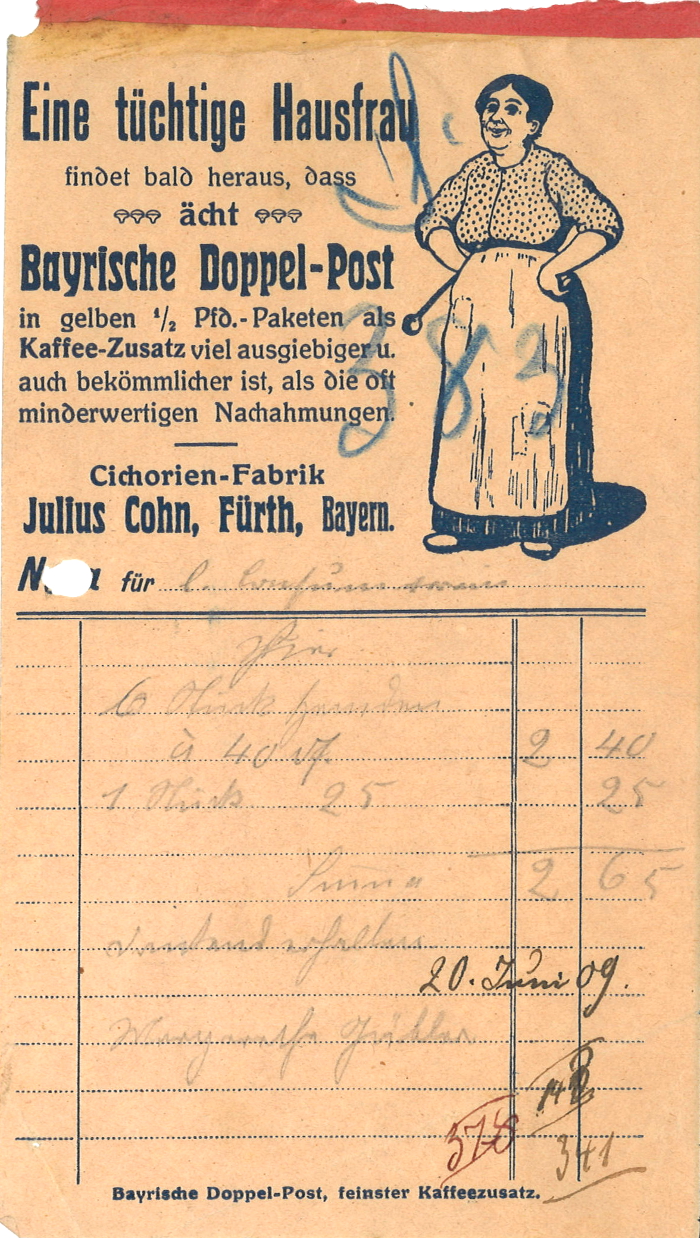 Eine tüchtige Hausfrau
findet bald heraus, dass
ächt
Bayrische Doppel-Post
in gelben ½ Pfd.-Paketen als
Kaffee-Zusatz viel ausgiebiger u.
auch bekömmlicher ist, als die oft
minderwertigen Nachahmungen.
383
Cichorien-Fabrik
Julius Cohn, Fürth, Bayern.
N a für l. Consumverein
6 Stück Hemden
à 40 Pf. 2 40
1 Stück 25 25
Suma 2 65
dankend erhalten
20. Juni 09.
Margarethe
378
341
Bayrische Doppel-Post, feinster Kaffeezusatz.